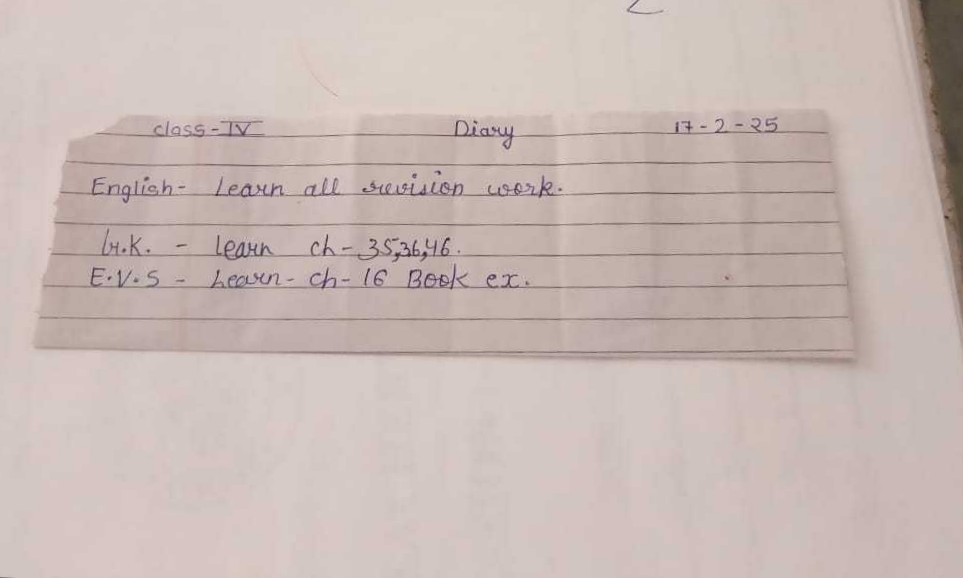 class-IV Diary 17-2-25
English- Learn all revision work.
G.K. - Learn ch-35,36,46.
E.V.S - Learn- ch-16 Book ex.